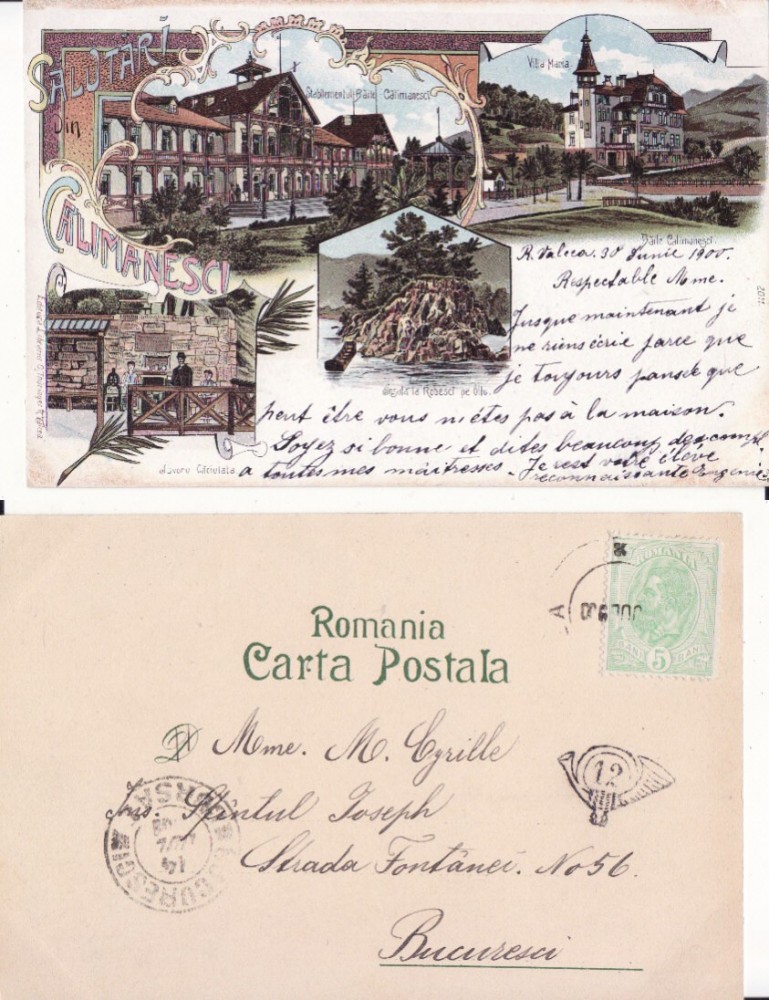 SALUTĂRĬ
DIN
CĂLIMĂNESCI
Stabilimentul Băile Călimanesci
Villa Maria
Băile Calimanesci
Insula la Robesci pe Oltu.
Isvoru Căciulata
2011
R. Valcea. 30 Iunie 1900.
Respectable Mme.
Jusque maintenant je
ne riens écrie parce que
je toujours pansée que
peut être vous n'étes pas à la maison.
Soyez si bonne et dites beaucoup des compl.
a toutes mes máitresses. Je rest votre élévé
reconnaissante Eugenie
ROMANIA
5
BANI
BANI
Romania
Carta Postala
Mme. M. Cyrille
12
Sfintul Joseph
Strada Fontânei. No 56.
Bucuresci
BUCURESCI
14
IUL